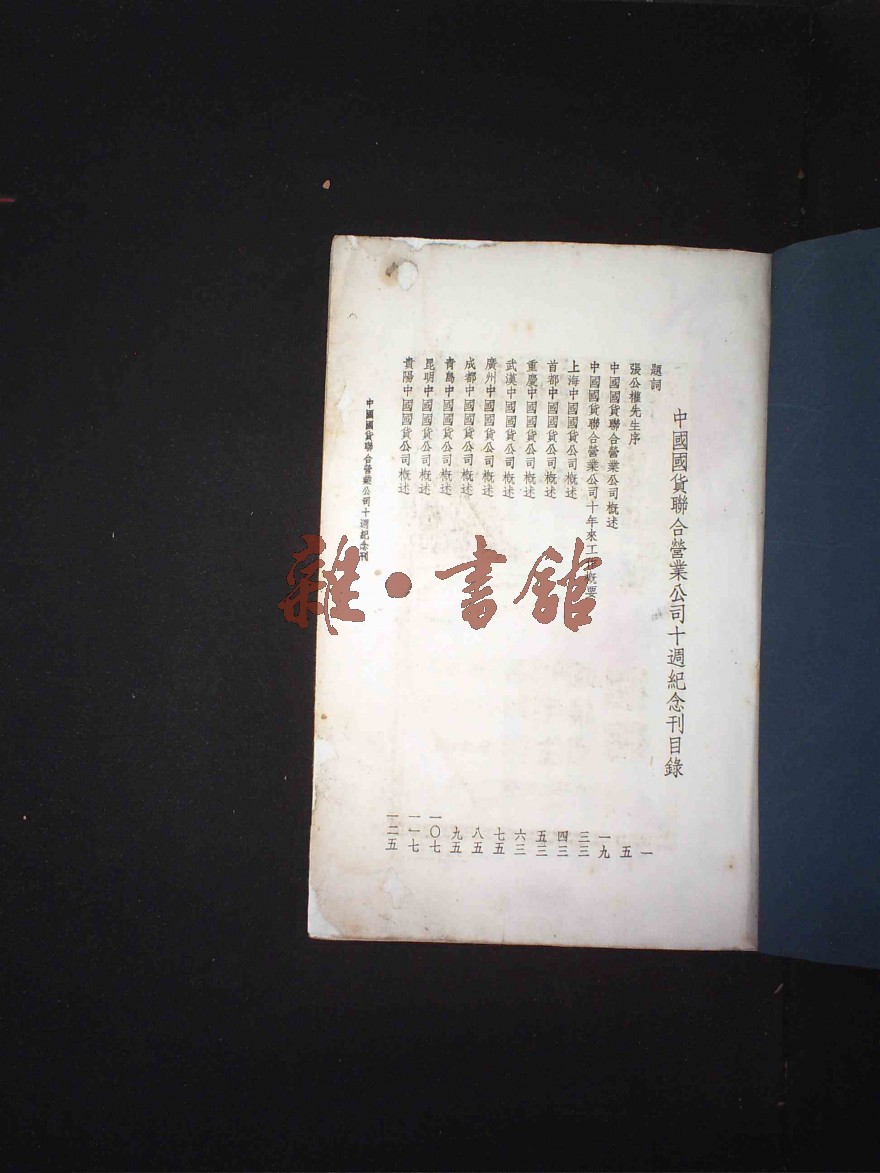 中國國貨聯合營業公司十週紀念刊目錄
題詞 一
張公權先生序 五
中國國貨聯合營業公司概述 一九
中國國貨聯合營業公司十年來工作概要 三三
上海中國國貨公司概述 四三
首都中國國貨公司概述 五三
重慶中國國貨公司概述 六三
武漢中國國貨公司概述 七五
廣州中國國貨公司概述 八五
成都中國國貨公司概述 九五
青島中國國貨公司概述 一〇七
昆明中國國貨公司概述 一一七
貴陽中國國貨公司概述 一二五
中國國貨聯合營業公司十週紀念刊
雜·書館